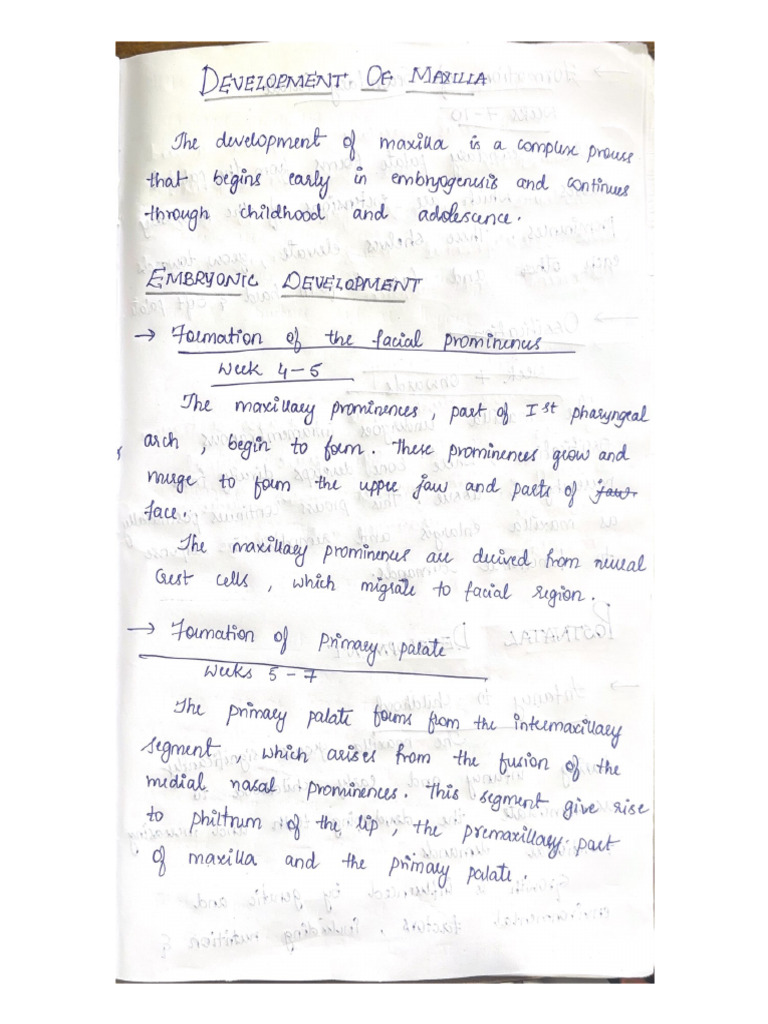 DEVELOPMENT OF MAXILLA
The development of maxilla is a complex process
that begins early in embryogenesis and continues
through childhood and adolescence.
EMBRYONIC DEVELOPMENT
→ Formation of the facial prominences
Week 4-5
The maxillary prominences, part of Ist pharyngeal
arch, begin to form. These prominences grow and
merge to form the upper jaw and parts of jaw
face.
The maxillary prominences are derived from neural
Crest cells, which migrate to facial region.
→ Formation of primary palate
Weeks 5-7
The primary palate forms from the intermaxillary
segment, which arises from the fusion of the
medial nasal prominences. This segment give rise
to philtrum of the lip, the premaxillary part
of maxilla and the primary palate.